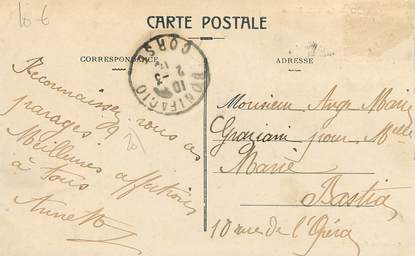 10 €
CARTE POSTALE
CORRESPONDANCE
ADRESSE
BONIFACIO
CORSE
Reconnaissez vous ces
parages ?
Meilleures affections
à tous
Annette
20
Monsieur Ange Marie
Graziani pour Melle
Marie
Bastia
10 rue de l'Opéra